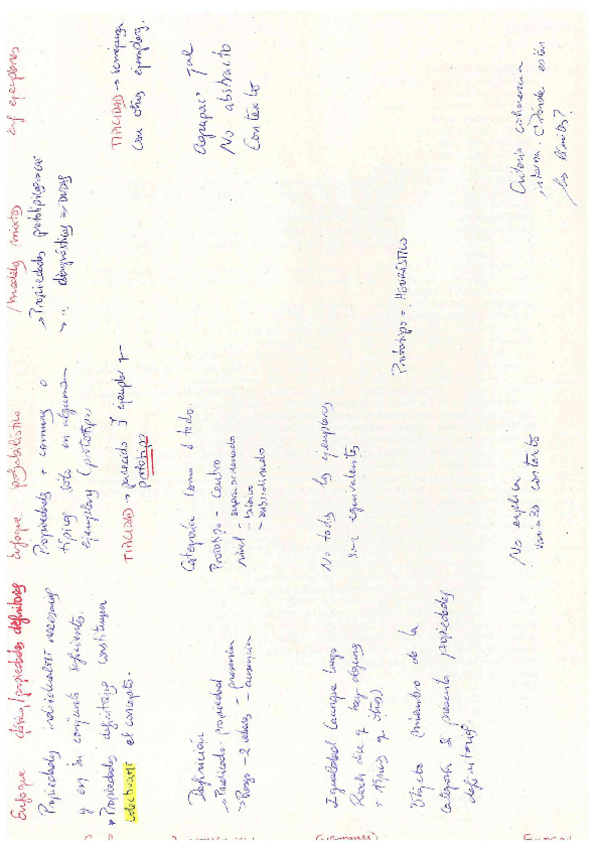 Enfoque clásico/propiedades definitorias
Propiedades individualmt necesarias
y en su conjunto suficientes.
* Propiedades definitorias constituyen
colectivamt el concepto.
Definición
→ Predicado - propiedad
→ Rango - 2 valores - presencia
- ausencia
Igualdad (aunque luego
Rosch dice q hay algunos
+ típicos q otros)
Objeto miembro de la
categoría si presenta propiedades
definitorias
Enfoque probabilístico
Propiedades + comunes o
típicas sólo en algunos
ejemplares (prototipos
TIPICIDAD → parecido
prototipo
Categoría como 1 todo.
Prototipo - centro
Nivel - supraordenado
- básico
- subordinado
No todos los ejemplares
son equivalentes
No explica
variación contexto
/ modelos (mixtos)
→ Propiedades prototípicas
→ " diagnósticas
Prototipo = HEURÍSTICO
Enf ejemplares
TIPICIDAD → semejanza
con otros ejemplares.
Agrupac
No abstracto
Contexto
Criterio coherencia
interna. ¿Dónde están
los límites?